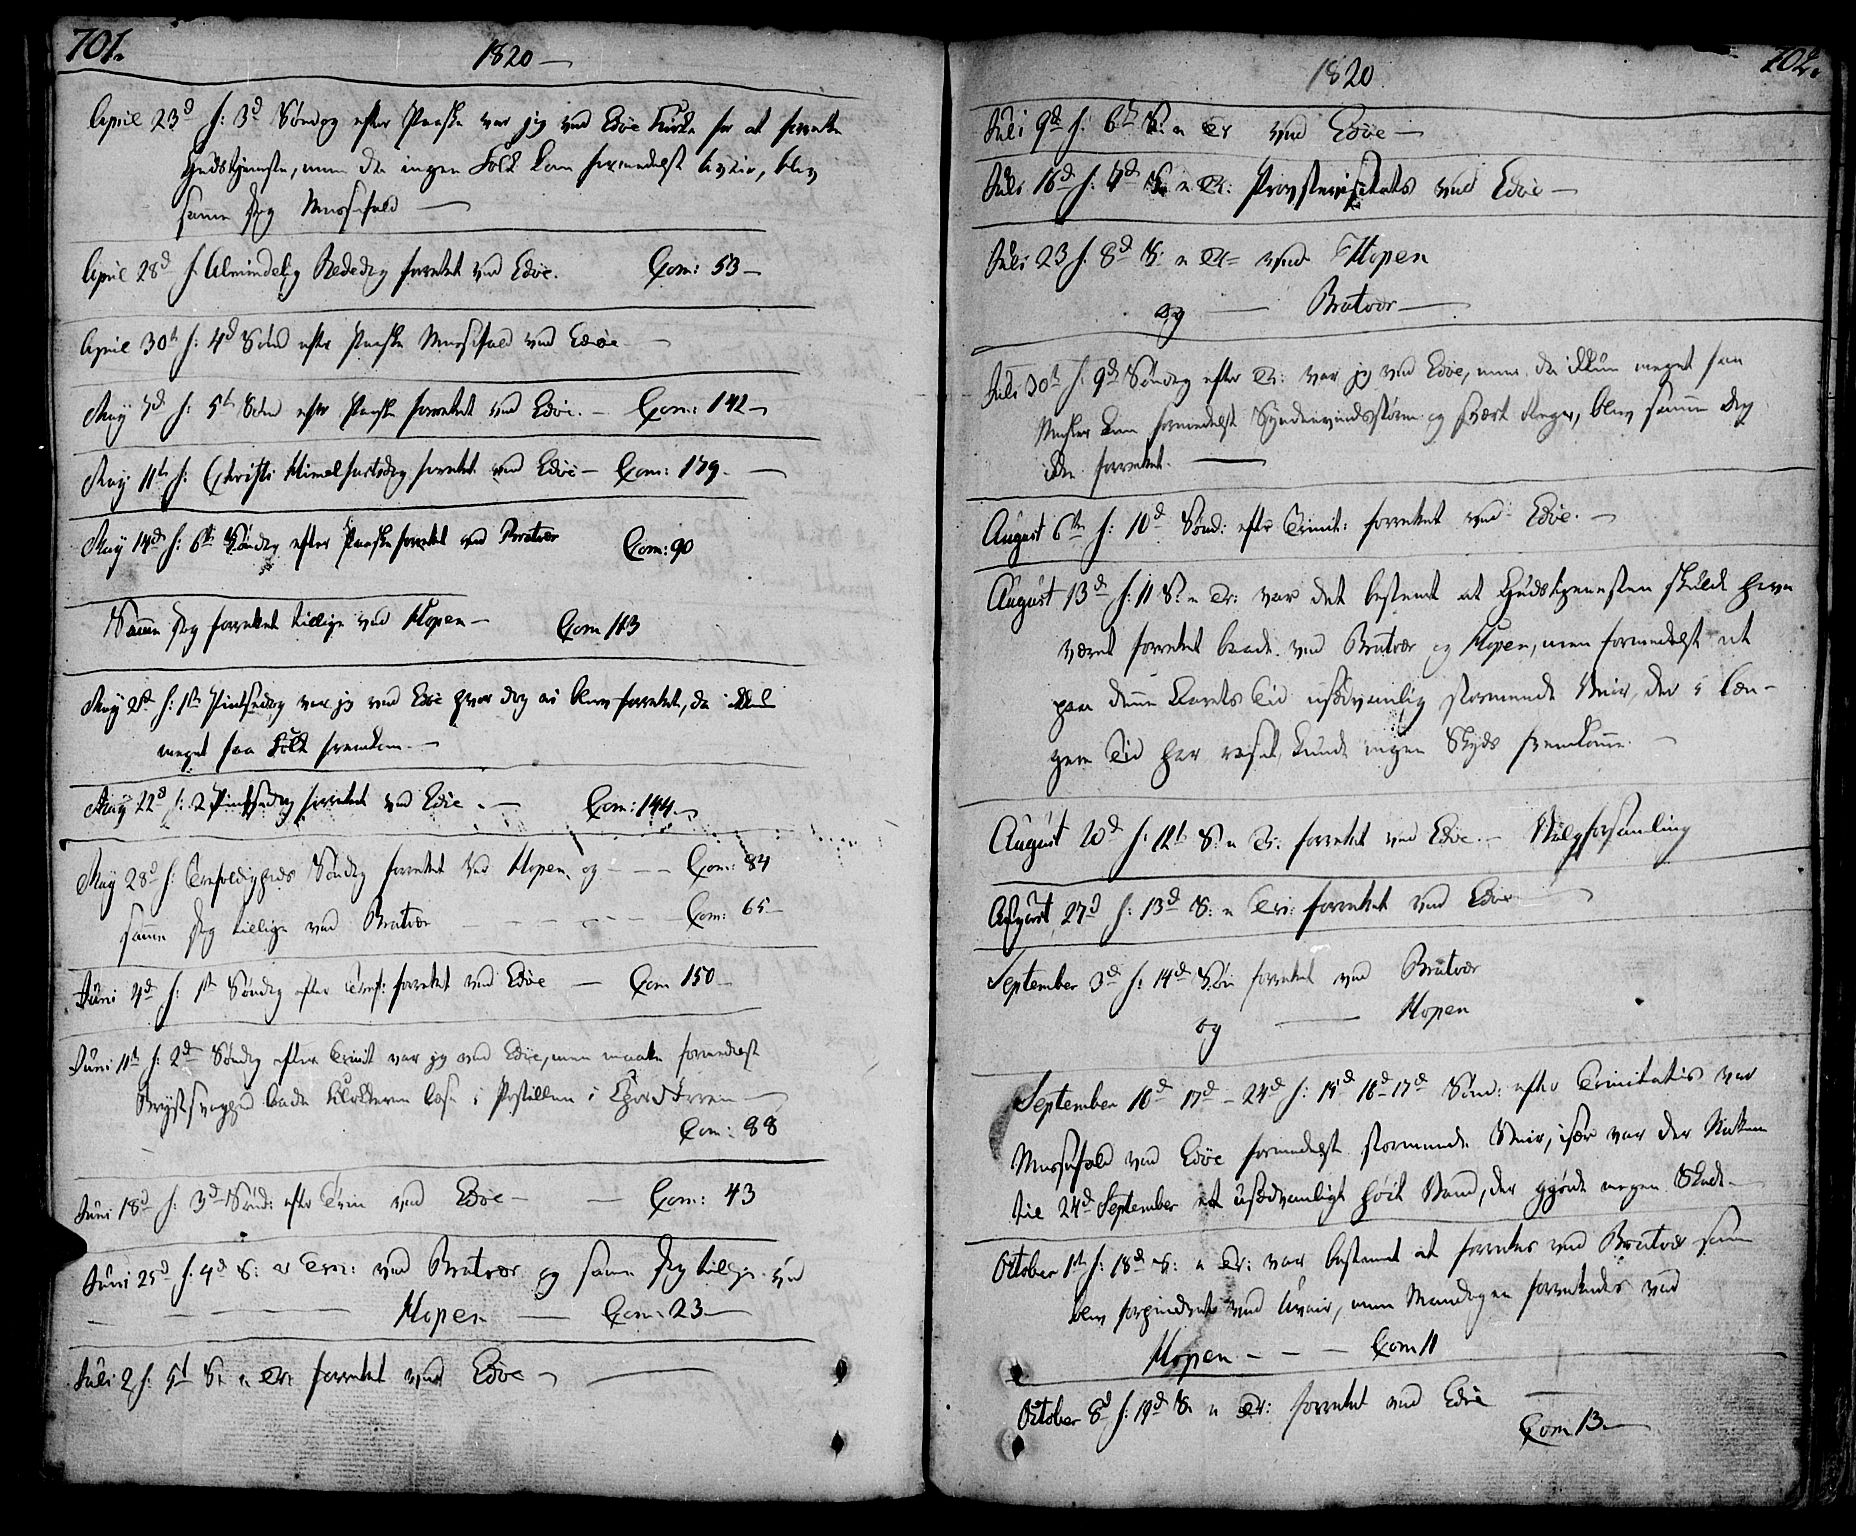 701.
1820 —
April 23d f: 3d Søndag efter Paaske var jeg ved Edøe Kirke for at forrette
Gudstjeneste, men da ingen Folk kom formedelst Uveir, blev
samme Dag Messefald —
April 28d f. Almindelig Bededag forrettet ved Edøe. Com: 53 —
April 30th f: 4d Sønd efter Paaske Messefald ved Edøe —
May 7d f: 5th Sønd efter Paaske forrettet ved Edøe. — Com: 142 —
May 11th f: Christi Himelfartsdag forrettet ved Edøe — Com: 179. —
May 14d f: 6th Søndag efter Paaske forrettet ved Bratvær Com: 90
Samme Dag forrettet tillige ved Hopen — Com 113
May 21d f: 1ste Pintsedag var jeg ved Edøe hvor dog ei blev forrettet, da ikkun
meget faa Folk fremkom. —
May 22d f: 2 Pintsedag forrettet ved Edøe. — Com: 144 —
May 28d f: Trefoldigheds Søndag forrettet ved Hopen, og - - - Com: 84
samme Dag tillige ved Bratvær - - - - - Com: 65 —
Juni 4d f: 1ste Søndag efter Tref: forrettet ved Edøe — Com 150 —
Juni 11th f: 2d Søndag efter Trinit var jeg ved Edøe, men maatte formedelst
Brystsvaghed lade Klokkeren læse i Postillen i Chordøren —
Com: 88
Juni 18d f: 3d Sønd: efter Trin ved Edøe — — Com: 43
Juni 25d f. 4d S: e Trin: ved Bratvær og samme Dag tillige ved
— — — Hopen — Com: 23 —
Juli 2 f: 5t S. e Tr: forrettet ved Edøe —
702.
1820
Juli 9d f. 6th S: e Tr ved Edøe —
Juli 16d f. 7d S. e Tr: Provstevisitats ved Edøe —
Juli 23 f. 8d S: e Tr= ved Hopen
og — Bratvær —
Juli 30th f. 9d Søndag efter Tr: var jeg ved Edøe, men da ikkun meget faa
Mennesker kom formedelst Søndenvindsstorm og stærk Regn, blev samme Dag
ikke forrettet. —
August 6te f: 10d Sønd: efter Trinit: forrettet ved Edøe. —
August 13d f: 11 S: e Tr: var det bestemt at Gudstjenesten skulde have
været forrettet baade ved Bratvær og Hopen, men formedelst et
paa denne Aarets Tid usædvanlig stormende Veir, der i læn-
gere Tid har raset, kunde ingen Skyds fremkomme. —
August 20d f. 12t S: e Tr: forrettet ved Edøe. — Valgforsamling
August 27d f: 13d S: e Tr: forrettet ved Edøe
September 3d f: 14d Søn forrettet ved Bratvær
og — Hopen
September 10d 17d — 24d f: 15d 16d 17d Sønd: efter Trinitatis var
Messefald ved Edøe formedelst stormende Veir, især var der Natten
til 24d September et usædvanligt høit Vand, der gjorde megen Skade. —
October 1ste f: 18d S: e Tr: var bestemt at forrettes ved Bratvær som
blev forhindret ved Uveir, men Mandagen forrettedes ved
Hopen - - - Com 11
October 8d f: 19d S. e Tr: forrettet ved Edøe —
Com 13 —